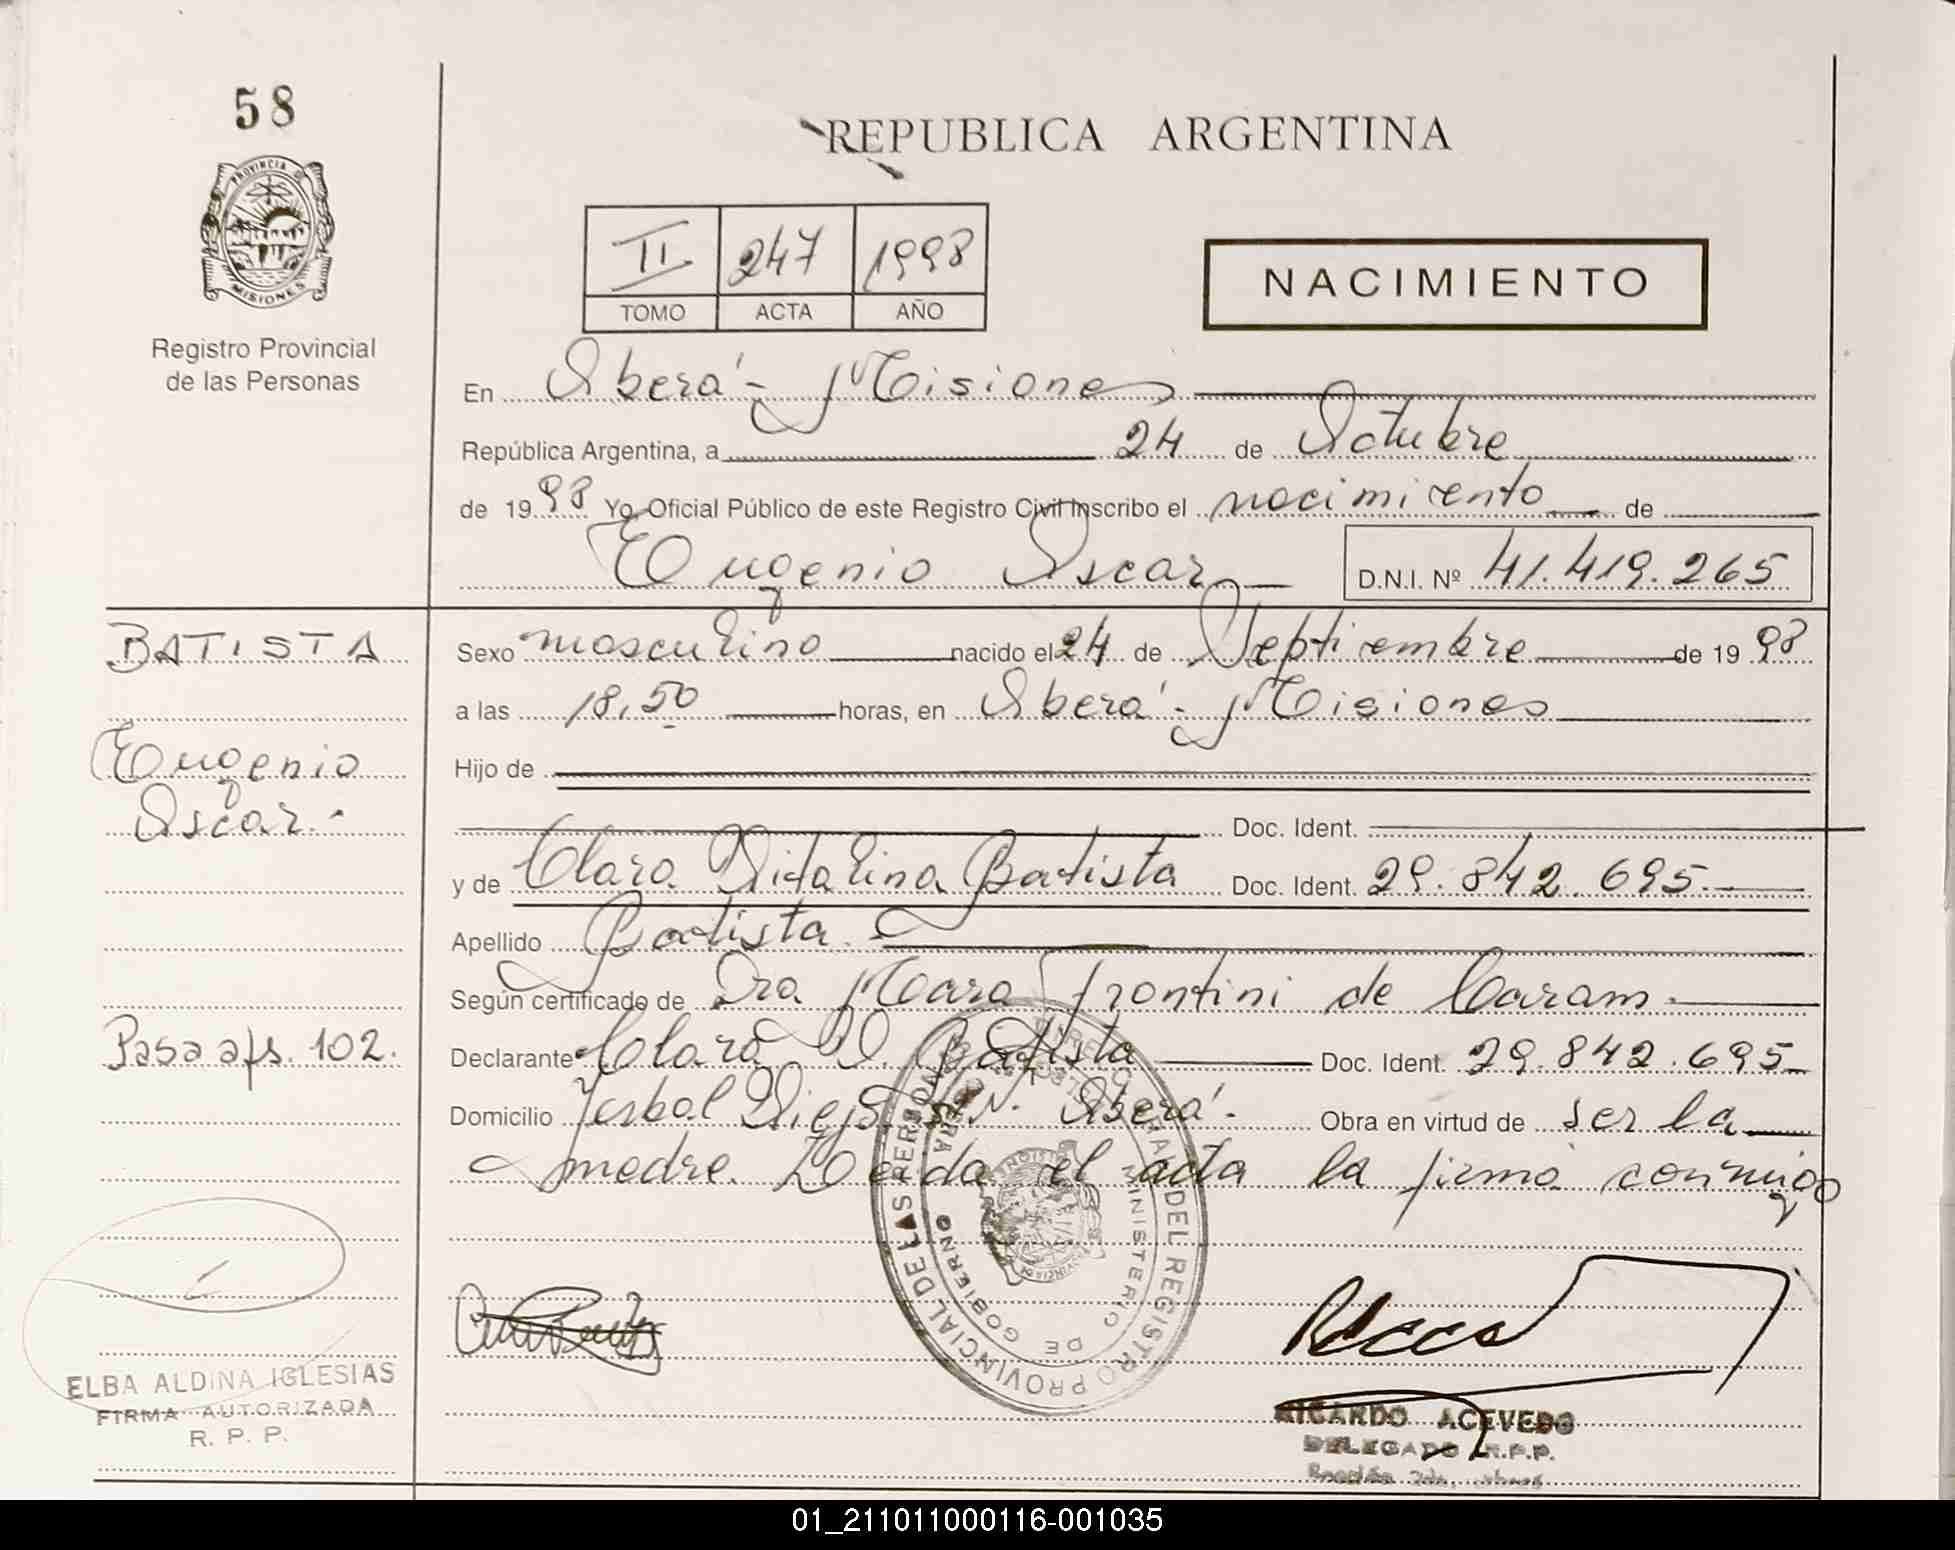 58
PROVINCIA DE
MISIONES
Registro Provincial
de las Personas
REPUBLICA ARGENTINA
II 247 1998
TOMO ACTA AÑO
NACIMIENTO
En Oberá - Misiones
República Argentina, a 24 de Octubre
de 1998 Yo, Oficial Público de este Registro Civil Inscribo el nacimiento de
Eugenio Oscar D.N.I. Nº 41.419.265
BATISTA
Eugenio
Oscar.-
Pasa a fs. 102.
Sexo masculino nacido el 24 de Septiembre de 1998
a las 18,50 horas, en Oberá - Misiones
Hijo de
Doc. Ident.
y de Clara Vitalina Batista Doc. Ident. 29.842.695.
Apellido Batista.
Según certificado de Dra Mara Frontini de Caram.
Declarante Clara V. Batista Doc. Ident. 29.842.695
Domicilio Yerbal Viejo S.N. Oberá.- Obra en virtud de ser la
madre. Leida el acta la firma conmigo
DIRECCION GRAL DEL REGISTRO PROVINCIAL DE LAS PERSONAS
MINISTERIO DE GOBIERNO
ELBA ALDINA IGLESIAS
FIRMA AUTORIZADA
R. P. P.
RICARDO ACEVEDO
DELEGADO R.P.P.
01_211011000116-001035